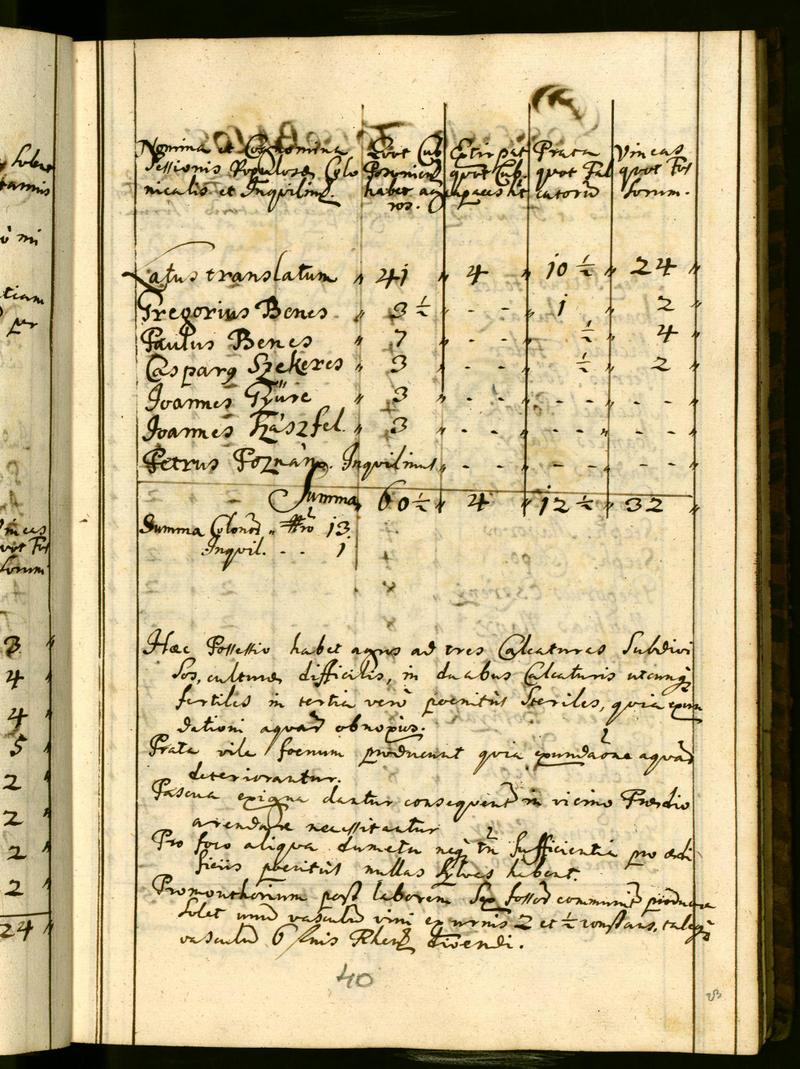 Nomina et Cognomina
Sessionis Populosae Colo
nicalis et Inquilin.
Quot Cub
Posonien
habet ag
ros.
Extirpat
quot Cub.
capaces
Prata
quot Fal
catorū
Vineas
quot Fos
sorum.
Latus translatum " 41 " 4 " 10 ½ " 24 "
Gregorius Benes " 3 ½ " - - " 1 " 2 "
Paulus Benes " 7 " - - " ½ " 4 "
Casparq Szekeres " 3 " - - " ½ " 2 "
Ioannes Gyüre " 3 " - - " - - " - - "
Ioannes Hászfel. " 3 " - - " - - " - - "
Petrus Poznán. Inquilinus " - - " - - " - - "
Summa 60 ½ " 4 " 12 ½ " 32 "
Summa Colonor " Nro 13
Inquil. - - 1
Haec Possessio habet agros ad tres Calcaturas Subdivi
sos, culturae difficilis, in duabus Calcaturis utcunq
fertiles in tertia verò poenitùs Steriles, quia exun
dationi aquar obnoxius.
Prata vile foenum producunt quia exundaōne aquar
deteriorantur.
Pascua exigua dantur consequent in vicino Praedio
arendare necessitantur
Pro foco aliqua dumeta neq tn Sufficientia pro aedi
ficiis poenitùs nullas Sylvas habent.
Promonthorium post laborem Sex fossor communit producere
solet unū vasculū vini ex urnis 2 et ½ constans, taleq
vasculū 6 fnis Rhen divendi.
40
3 "
4 "
4 "
5 "
2 "
2 "
2 "
2 "
24 "